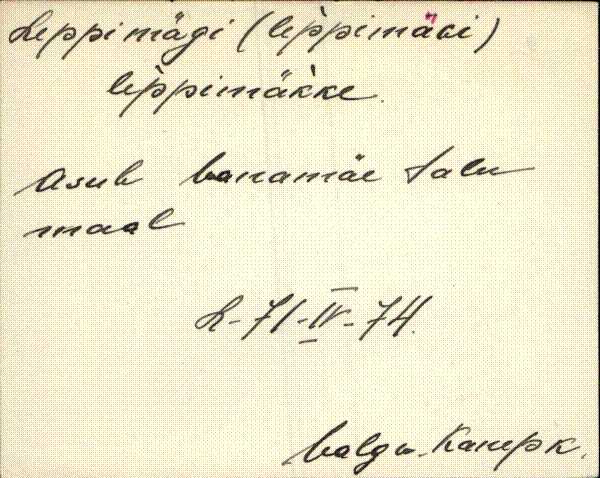 Leppimägi (lep̀pimäǵi)
lep̀pimäk̀ke.
Asub Vanamäe talu
maal
L-71-IV-74.
Valga-Kaarepk.